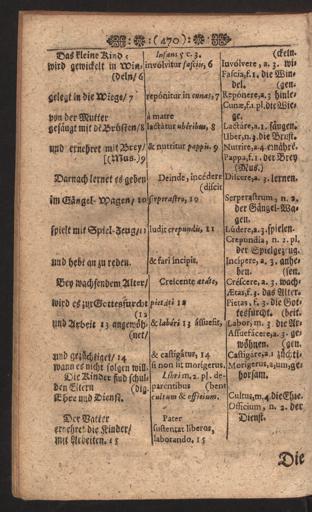 :(470):
Das kleine Kind
Infans γ c. 3.
(ckeln.
wird gewickelt in Win-
involvitur fasciis, 6
Involvere, a. 3. wi-
(deln/ 6
Fascia, f. 1. die Win-
del. (gen.
gelegt in die Wiege/ 7
reponitur in cunas, 7
Reponere, a. 3 hinle-
Cunæ, f. 1. pl. die Wie-
ge.
von der Mutter
a matre
gesängt mit dē Brüsten/ 8
lactatur uberibus, 8
Lactare, a. 1. säugen.
Uber, n. 3. die Brust.
und ernehret mit Brey/
& nutritur pappis. 9
Nutrire, a. 4. ernähre.
[(Mus.) 9
Pappa, f. 1. der Brey
(Mus.)
Darnach lernet es gehen
Deinde, incedere
Discere, a. 3. lernen.
(discit
im Gängel-Wagen/ 10
serperastro, 10
Serperastrum, n. 2.
der Gängel-Wa-
gen.
spielt mit Spiel-Zeug/ 11
ludit crepundiis, 11
Ludere, a. 3. spielen.
Crepundia, n. 2. pl.
der Spielgezeug.
und hebt an zu reden.
& fari incipit.
Incipere, a. 3. anhe-
ben. (sen.
Bey wachsendem Alter/
Crescente ætate,
Crescere, a. 3. wach-
Ætas, f. 3. das Alter.
wird es zur Gottesfurcht
pietati 12
Pietas, f. 3. die Got-
(12
tesfurcht. (beit.
und Arbeit 13 angewöh-
& labori 13 assuefit,
Labor, m. 3 die Ar-
(net/
Assuefacere, a. 3. ge-
wöhnen. (gen.
und gezüchtiget/ 14
& castigatur, 14
Castigare, a. 1 züchti-
wann es nicht folgen will.
si non sit morigerus.
Morigerus, a, um, ge-
Die Kinder sind schul-
Liberi m. 2. pl. de-
horsam.
den Eltern (dig.
parentibus (bent
Ehre und Dienst.
cultum & officium.
Cultus, m. 4. die Ehre.
Officium, n. 2. der
Der Vatter
Pater
Dienst.
ernehret die Kinder/
sustentat liberos,
mit Arbeiten. 15
laborando. 15
Die